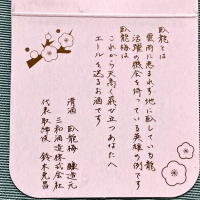 臥龍とは
雲雨に恵まれず地に臥している龍
活躍の機会を待っている英雄の例です
臥龍梅は
これから天高く飛び立つあなたへ
エールを送るお酒です
清酒 臥龍梅 醸造元
三和酒造株式会社
代表取締役 鈴木克昌